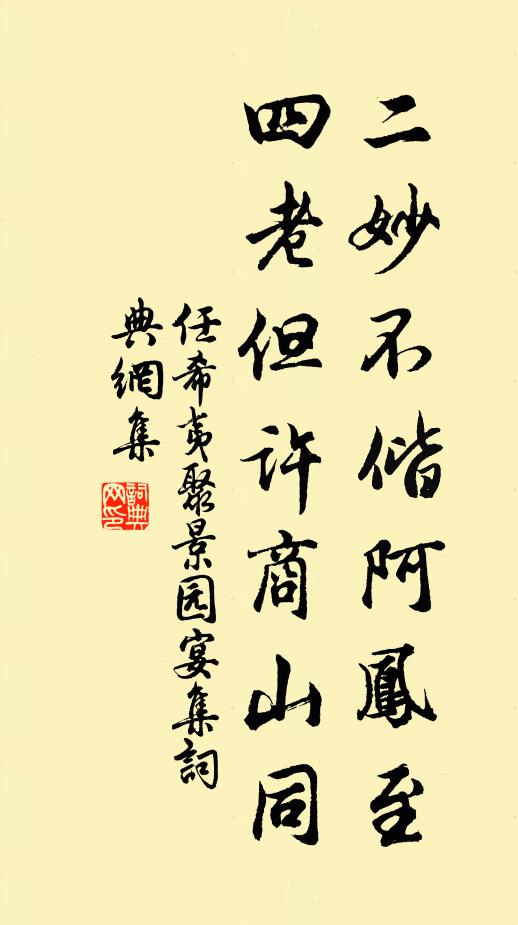 二妙不偕阿鳳至
四老但许商山同
任希夷聚景园宴集詞
典網集
詞典網印